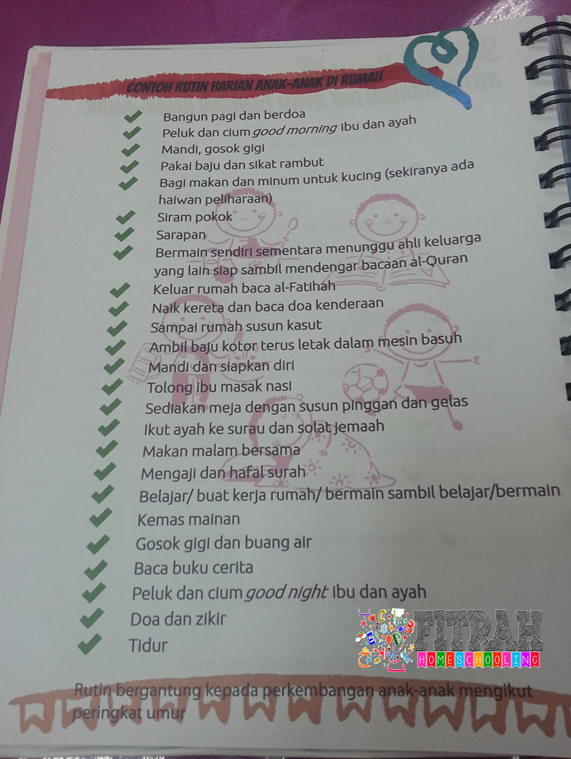 CONTOH RUTIN HARIAN ANAK-ANAK DI RUMAH
Bangun pagi dan berdoa
Peluk dan cium good morning ibu dan ayah
Mandi, gosok gigi
Pakai baju dan sikat rambut
Bagi makan dan minum untuk kucing (sekiranya ada
haiwan peliharaan)
Siram pokok
Sarapan
Bermain sendiri sementara menunggu ahli keluarga
yang lain siap sambil mendengar bacaan al-Quran
Keluar rumah baca al-Fatihah
Naik kereta dan baca doa kenderaan
Sampai rumah susun kasut
Ambil baju kotor terus letak dalam mesin basuh
Mandi dan siapkan diri
Tolong ibu masak nasi
Sediakan meja dengan susun pinggan dan gelas
Ikut ayah ke surau dan solat jemaah
Makan malam bersama
Mengaji dan hafal surah
Belajar/ buat kerja rumah/ bermain sambil belajar/bermain
Kemas mainan
Gosok gigi dan buang air
Baca buku cerita
Peluk dan cium good night ibu dan ayah
Doa dan zikir
Tidur
FITRAH
HOMESCHOOLING
Rutin bergantung kepada perkembangan anak-anak mengikut
peringkat umur